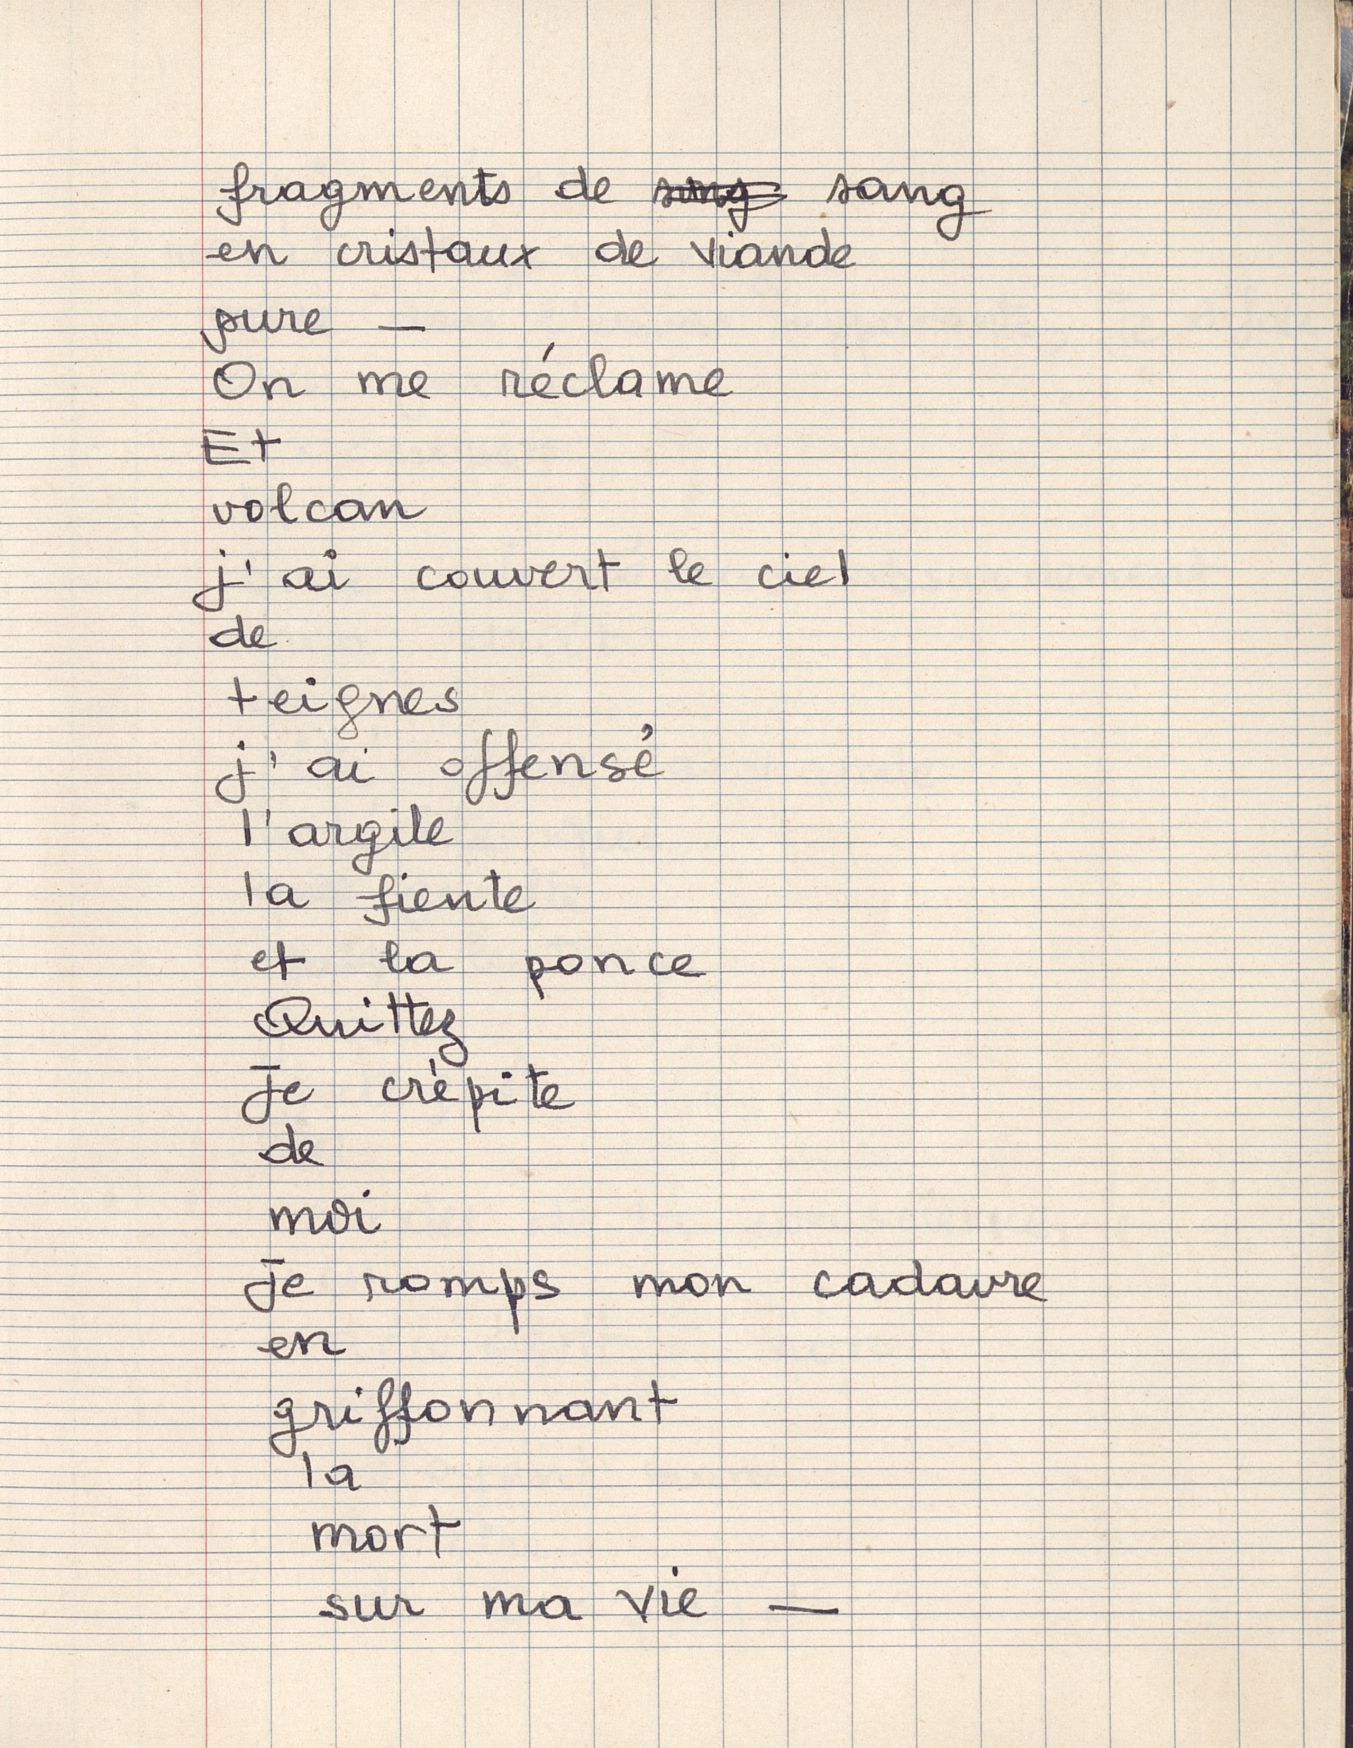 fragments de sang sang
en cristaux de viande
pure —
On me réclame
Et
volcan
j'ai couvert le ciel
de
teignes
j'ai offensé
l'argile
la fiente
et la ponce
Quittez
Je crépite
de
moi
Je romps mon cadavre
en
griffonnant
la
mort
sur ma vie —